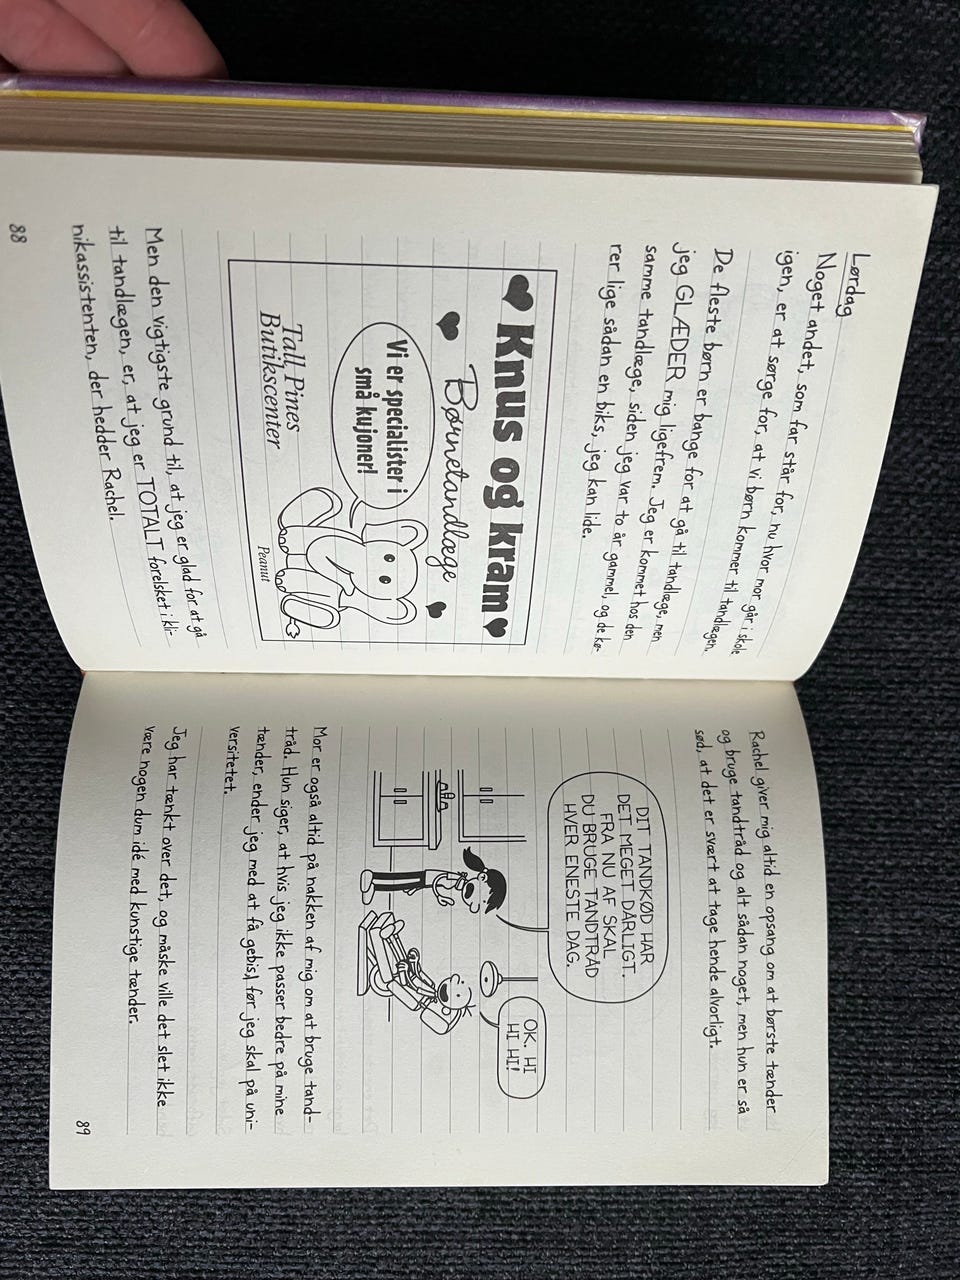 Lørdag
Noget andet, som far står for, nu hvor mor går i skole
igen, er at sørge for, at vi børn kommer til tandlægen.
De fleste børn er bange for at gå til tandlæge, men
jeg GLÆDER mig ligefrem. Jeg er kommet hos den
samme tandlæge, siden jeg var to år gammel, og de kø-
rer lige sådan en biks, jeg kan lide.
Knus og kram
Børnetandlæge
Vi er specialister i
små kujoner!
Tall Pines
Butikscenter
Peanut
Men den vigtigste grund til, at jeg er glad for at gå
til tandlægen, er, at jeg er TOTALT forelsket i kli-
nikassistenten, der hedder Rachel.
88
Rachel giver mig altid en opsang om at børste tænder
og bruge tandtråd og alt sådan noget, men hun er så
sød, at det er svært at tage hende alvorligt.
DIT TANDKØD HAR
DET MEGET DÅRLIGT.
FRA NU AF SKAL
DU BRUGE TANDTRÅD
HVER ENESTE DAG.
OK. HI
HI HI!
Mor er også altid på nakken af mig om at bruge tand-
tråd. Hun siger, at hvis jeg ikke passer bedre på mine
tænder, ender jeg med at få gebis, før jeg skal på uni-
versitetet.
Jeg har tænkt over det, og måske ville det slet ikke
være nogen dum idé med kunstige tænder.
89